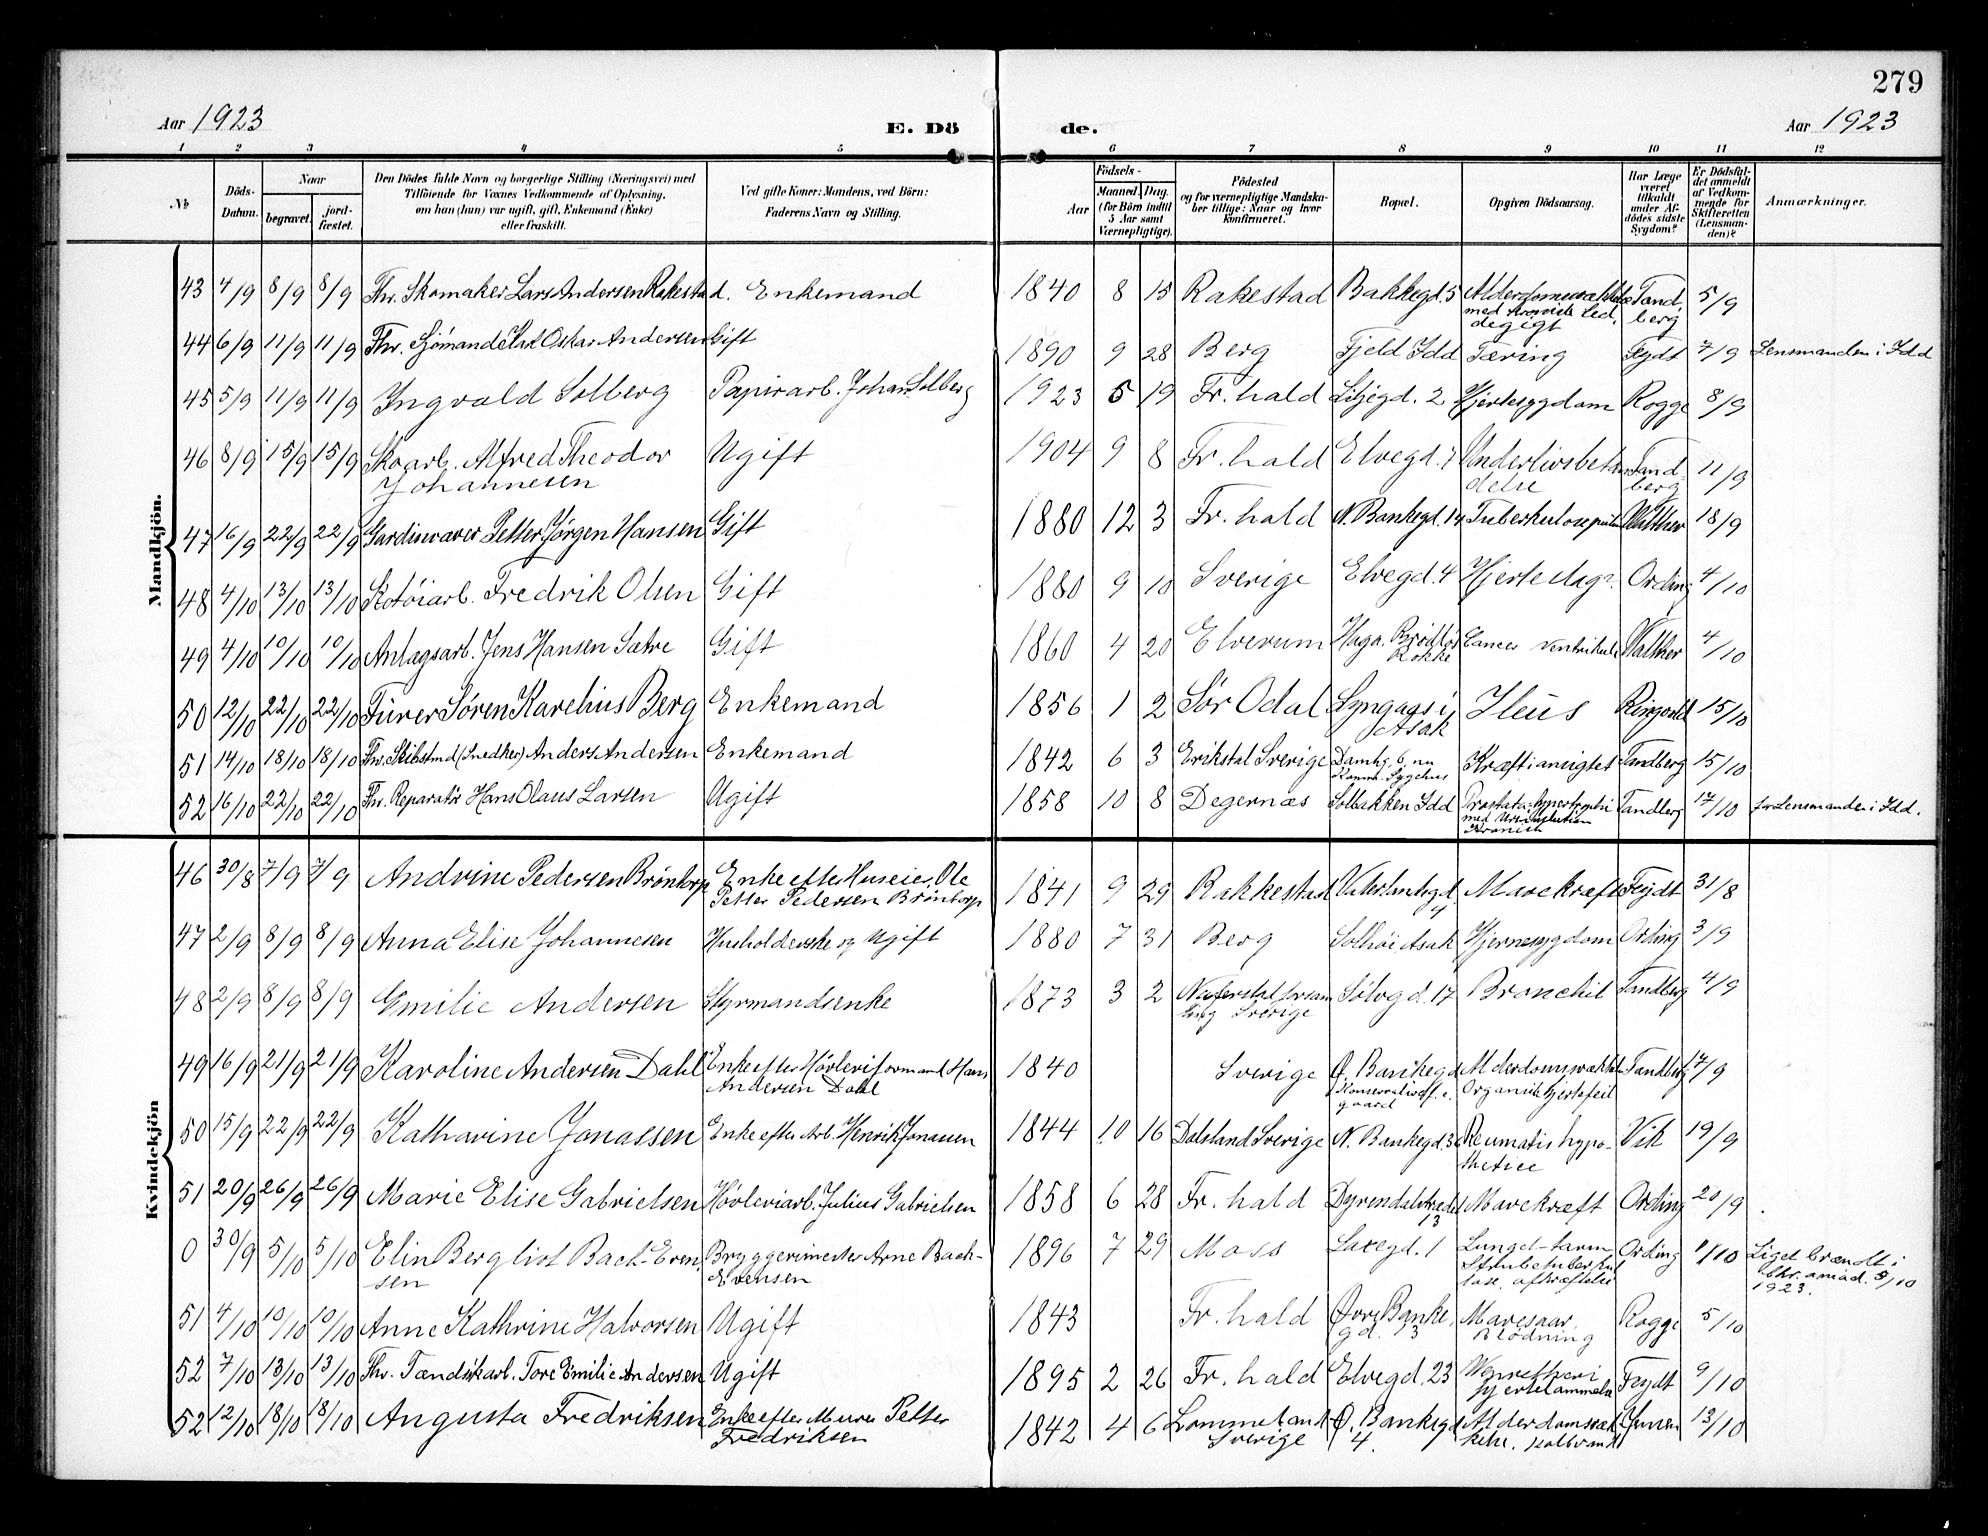 279
Aar 1923
E. Dö de.
Aar 1923
1 2 3 4 5 6 7 8 9 10 11 12
№
Döds-Datum.
Naar
begravet.
jord-fæstet.
Den Dödes fulde Navn og borgerlige Stilling (Næringsvei) med
Tilföiende for Voxnes Vedkommende af Oplysning,
om han (hun) var ugift, gift, Enkemand (Enke)
eller fraskilt.
Ved gifte Koner: Mandens, ved Börn:
Faderens Navn og Stilling.
Födsels-
Aar
Maaned. Dag.
(for Börn indtil
5 Aar samt
Værnepligtige).
Födested
og for værnepligtige Mandska-
ber tillige: Naar og hvor
konfirmeret.
Bopæl.
Opgiven Dödsaarsag.
Har Læge
været
tilkaldt
under Af-
dödes sidste
Sygdom?
Er Dödsfal-
det anmeldt
af Vedkom-
mende for
Skifteretten
(Lensman-
den)?
Anmærkninger.
Mandkjön.
43 4/9 8/9 8/9 Fhv. Skomaker Lars Andersen Rakestad. Enkemand 1840 8 15 Rakestad Bakkegd. 5 Tandberg 5/9
med kronisk Led.
degigt
44 6/9 11/9 11/9 Fhv. Sjömand Karl Oskar Andersen Gift 1890 9 28 Berg Fjeld Idd Tæring Feydt 7/9 Lensmanden i Idd
45 5/9 11/9 11/9 Ingvald Solberg Papirarb. Johan Solberg 1923 5 19 Fr. hald Liljegd. 2 Hjertesygdom Rogge 8/9
46 8/9 15/9 15/9 Skoarb. Alfred Theodor Ugift 1904 9 8 Fr. hald Elvegd. 7 Underlivsbetændelse Tandberg 11/9
Johannesen
47 16/9 22/9 22/9 Gardinvæver Petter Jörgen Hansen Gift 1880 12 3 Fr. hald N. Bankegd. 14 Tuberkulose Walther 18/9
48 4/10 13/10 13/10 Fredrik Olsen Gift 1880 9 10 Sverige Elvegd. 4 Hjerteslag Ording 4/10
49 4/10 10/10 10/10 Anlægsarb. Jens Hansen Sætre Gift 1860 4 20 Elverum Haga. Rokke Cancer ventrikuli Walther 4/10
50 12/10 22/10 22/10 Furer Sören Karelius Berg Enkemand 1856 1 2 Sör Odal i Asak Ileus Ringvold 15/10
51 14/10 18/10 18/10 Fhv. Skibstmd (Snedker) Anders Andersen Enkemand 1842 6 3 Erikstad Sverige Damhg. 6, nu
Komm. Sygehus Tandberg 15/10
52 16/10 22/10 22/10 Fhv. Reparatör Hans Olaus Larsen Ugift 1858 10 8 Degernæs Solbakken Idd Prostata-hypertrophi Tandberg 17/10 Lensmanden i Idd.
Kvindekjön
46 30/8 7/9 7/9 Andrine Pedersen Bröntorp Enke efter Huseier Ole
Petter Pedersen Bröntorp 1841 9 29 Rakkestad Vaterlandsgd. 4 Mavekræft Feydt 31/8
47 2/9 8/9 8/9 Anna Elise Johannesen Husholderske og Ugift 1880 7 31 Berg Solhöi Asak Hjernesygdom Ording 3/9
48 2/9 8/9 8/9 Emilie Andersen Styrmandsenke 1873 3 2 Sverige Sölvgd. 17 Bronchit Tandberg 4/9
49 16/9 21/9 21/9 Karoline Andersen Dahl Enke efter Hövleriformand Hans
Andersen Dahl 1840 Sverige Ø. Bankegd. Alderdomssvækkelse Tandberg 17/9
Organisk Hjertefeil
50 15/9 22/9 22/9 Katharine Jonassen Enke efter Arb. Henrik Jonassen 1844 10 16 Dalsland Sverige N. Bankegd. Vik 19/9
51 20/9 26/9 26/9 Marie Elise Gabrielsen Hövleriarb. Julius Gabrielsen 1858 6 28 Fr. hald 13 Mavekræft Ording 20/9
0 30/9 5/10 5/10 Elin Bergliot Bach-Even
sen Bryggerimester Arne Bach-
Evensen 1896 7 29 Moss Laxegd. 1 Ording 1/10 Liget brændt i
1923.
51 4/10 10/10 10/10 Anne Kathrine Halvorsen Ugift 1843 Fr. hald Övre Banke
gd. 13 Mavesaar,
Blödning Rogge 5/10
52 7/10 13/10 13/10 Fhv. Tændstikarb. Tore Emilie Andersen Ugift 1895 2 26 Fr. hald Elvegd. 23 Feydt 9/10
52 12/10 18/10 18/10 Augusta Fredriksen Enke efter Murer Petter
Fredriksen 1842 4 6 Lommeland
Sverige Ø. Bankegd.
4. Alderdomssvæk
kelse, 13/10